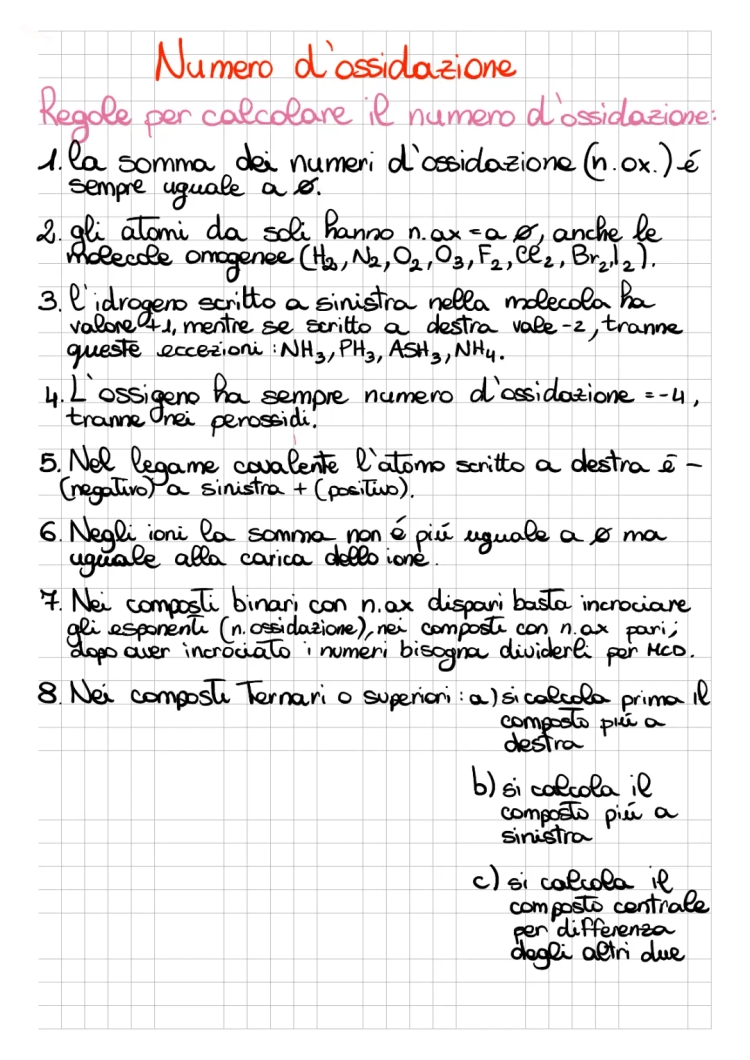 Numero d'ossidazione
Regole per calcolare il numero d'ossidazione:
1. la somma dei numeri d'ossidazione (n.ox.) é
sempre uguale a ø.
2. gli atomi da soli hanno n.ax = a ø, anche le
molecole omogenee (H₂, N₂, O₂, O₃, F₂, Cl₂, Br₂, I₂).
3. l'idrogeno scritto a sinistra nella molecola ha
valore +1, mentre se scritto a destra vale -2, tranne
queste eccezioni : NH₃, PH₃, ASH₃, NH₄.
4. L'ossigeno ha sempre numero d'ossidazione = -4,
tranne nei perossidi.
5. Nel legame covalente l'atomo scritto a destra é -
(negativo) a sinistra + (positivo).
6. Negli ioni la somma non é piú uguale a ø ma
uguale alla carica dello ione.
7. Nei composti binari con n.ax dispari basta incrociare
gli esponenti (n.ossidazione), nei composti con n.ax pari,
dopo aver incrociato i numeri bisogna dividerli per MCD.
8. Nei composti Ternari o superiori : a) si calcola prima il
composto piú a
destra
b) si calcola il
composto piú a
sinistra
c) si calcola il
composto centrale
per differenza
degli altri due